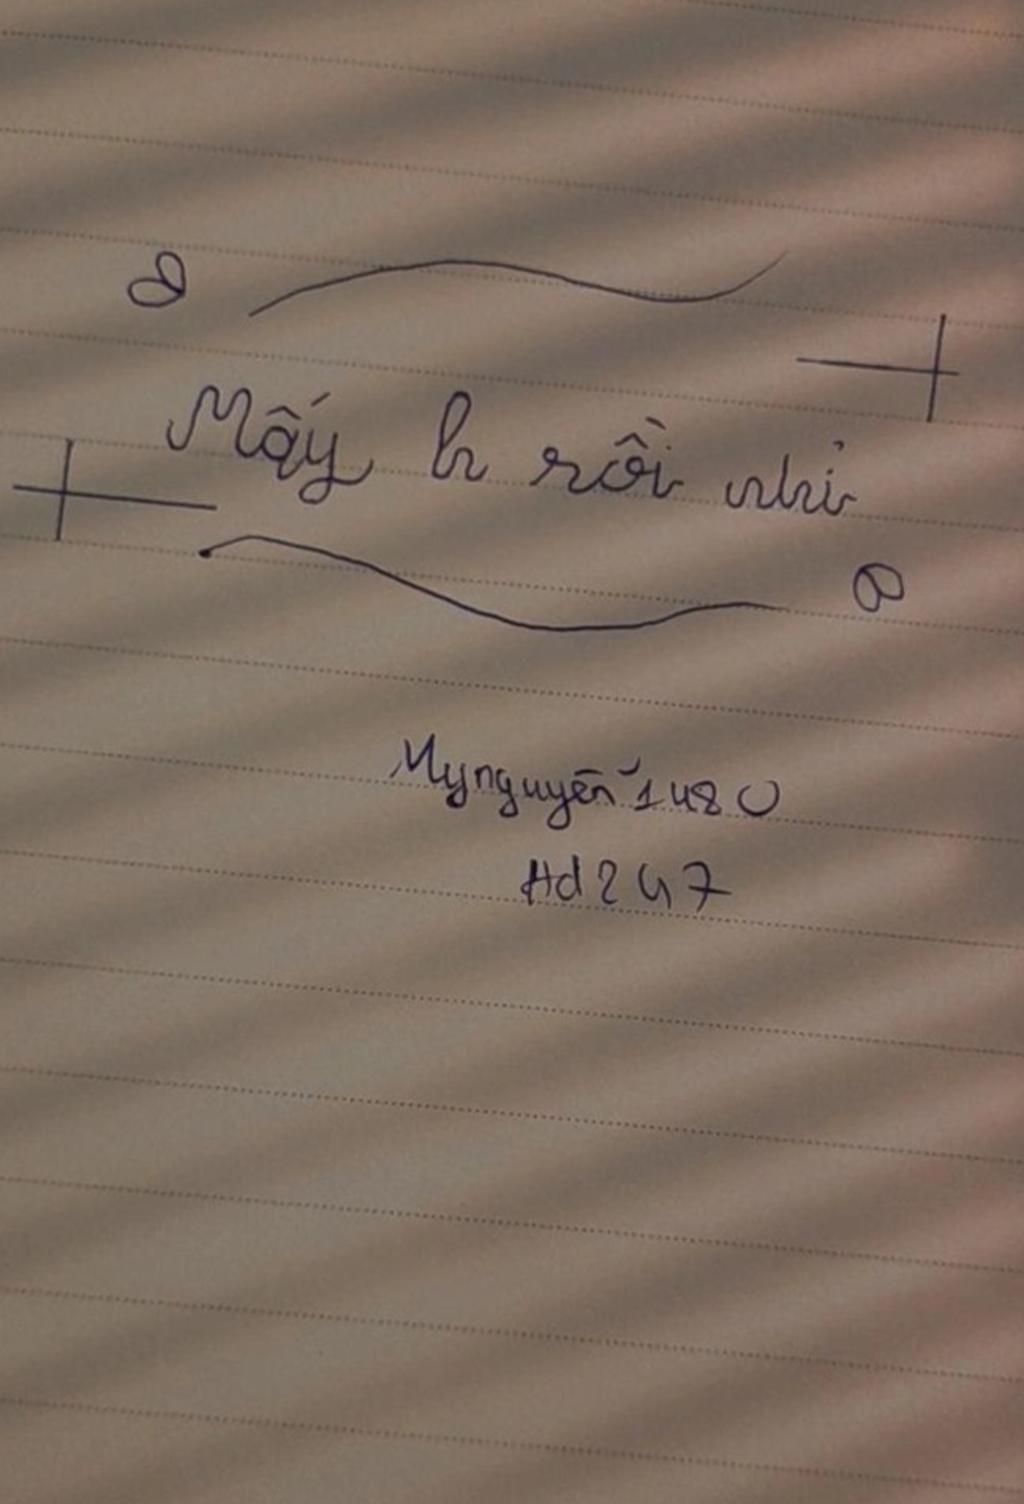 Mấy h rồi nhỉ
Mynguyễn1480
Ad247